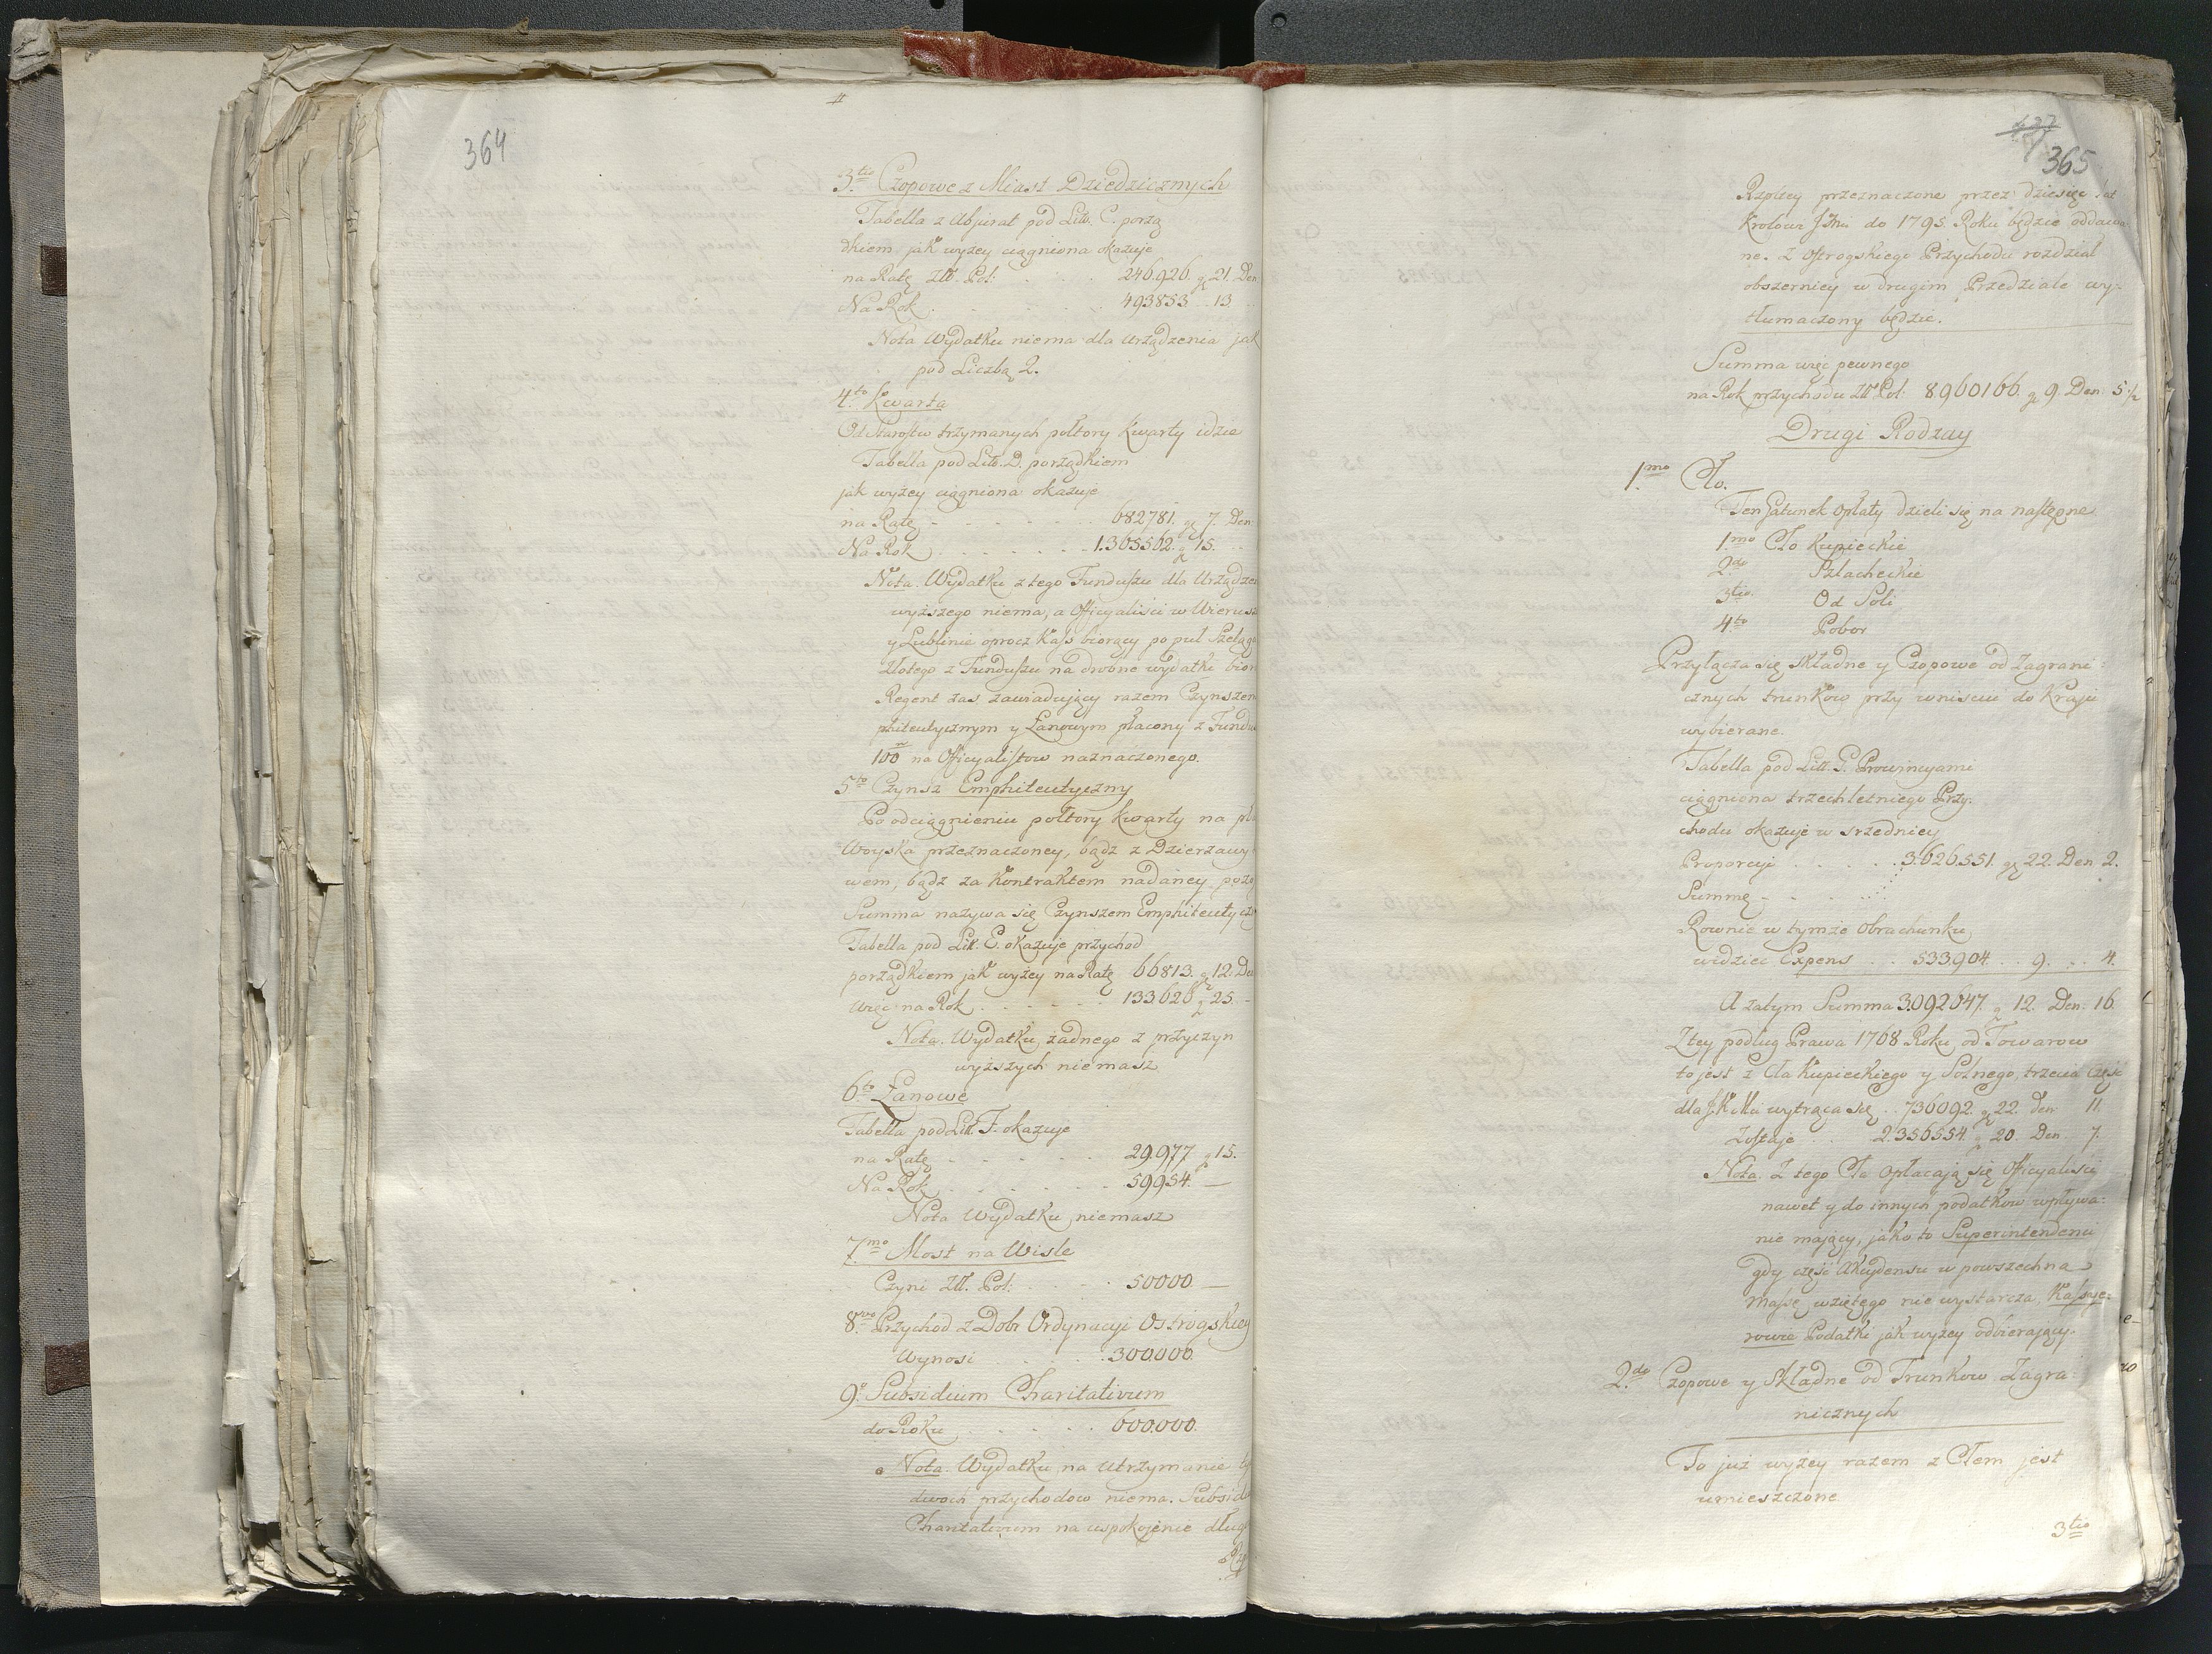 364
3tio Czopowe z Miast Dziedzicznych
Tabella z Abjurat pod Litt. C. porzą
dkiem jak wyżey ciągniona okazuje
na Ratę Złł. Pol: 246.926 g 21. Den
Na Rok 493853 13
Nota Wydatku niema dla Urządzenia jak
pod Liczbą 2.
4to Kwarta
Od Starostw trzymanych połtory Kwarty idzie
Tabella pod Litt. D. porządkiem
jak wyżey ciągniona okazuje
na Ratę 682781. g 7. Den:
Na Rok 1.365562. g 15.
Nota. Wydatku z tego Funduszu dla Urządzen
wyższego niema, a Officyaliści w Wierusz
y Lublinie oprocz Kass biorący po puł Szeląga
Złotego z Funduszu na drobne wydatki bior
Regent zas zawiadujący razem Czynszem
phiteutycznym y Łanowym płacony z Fundu
100 na Officyalistow naznaczonego.
5to Czynsz Emphiteutyczny
Po odciągnieniu połtory kwarty na
Woyska przeznaczoney, bądz z Dzierzawy
wem, bądz za Kontraktem nadaney
Summa nazywa się Czynszem Emphiteutycz
Tabella pod Litt. E. okazuje przychod
porządkiem jak wyżey na Ratę 66813. g 12. De
Więc na Rok 133.626 g 25.
Nota. Wydatku żadnego z przyczyn
wyższych niemasz
6to Łanowe
Tabella pod Litt. F. okazuje
na Ratę 29.977 g 15.
Na Rok 59954. —
Nota Wydatku niemasz
7mo Most na Wisle
Czyni Złł. Pol: 50000 —
8vo Przychod z Dobr Ordynacyi Ostrogskiey
Wynosi 300.000.
9° Subsidium Charitativum
do Roku 600.000.
Nota. Wydatku na Utrzymanie
dwoch przychodow niema. Subsid
Charitativum na uspokojenie dług
Rzp
365
Rzpltey przeznaczone przez dziesięc lat
Krolowi JMci do 1795. Roku będzie oddawa
ne. Z Ostrogskiego Przychodu rozdział
obszerniey w drugim Przedziale wy-
tłumaczony będzie.
Summa więc pewnego
na Rok przychodu Złł. Pol: 8.960166. g 9. Den: 5½
Drugi Rodzay
1mo Cło.
Ten Gatunek opłaty dzieli się na następne
1mo Cło Kupieckie
2do Szlacheckie
3tio. Od Soli
4to Pobor
Przyłącza się Składne y Czopowe od Zagrani:
cznych trunkow przy wniściu do Kraju
wybierane.
Tabella pod Litt. G. Prowincyami
ciągniona trzechletniego Przy-
chodu okazuje w srzedniey
Proporcyi 3.626.551. g 22. Den 2.
Summę
Rownie w tymże Obrachunku
widziec Expens 533.904. 9. 4.
A zatym Summa 3.092647. g 12. Den: 16.
Z tey podług Prawa 1768 Roku od Towarow
to jest z Cła Kupieckiego y Solnego, trzecia część
dla J.K.Mci wytrąca się 736092. g 22. Den: 11.
Zostaje 2.356554. g 20. Den 7.
Nota. Z tego Cła opłacają się Officyaliści
nawet y do innych podatkow wpływa:
nie mający, jako to Superintendenci
gdy część Akcydensu w powszechną
Massę wziętego nie wystarcza, Kassye:
rowie Podatki jak wyżey odbierający.
2do Czopowe y Składne od Trunkow Zagra:
nicznych
To już wyżey razem z Cłem jest
umieszczone
3tio